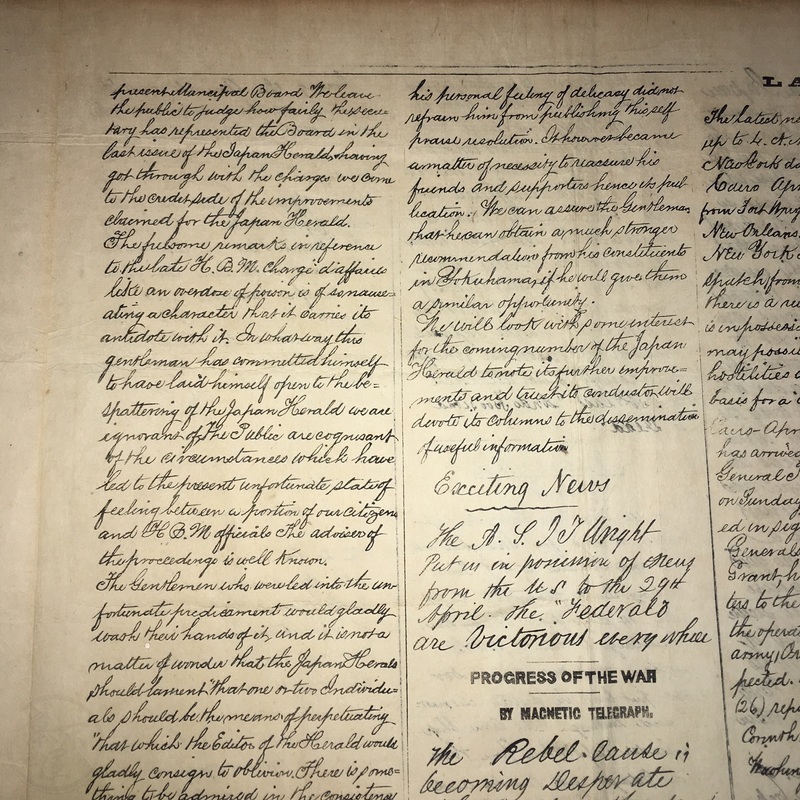 present Muncipal Board We leave
the public to judge how fairly the secre-
tary has represented the Board in the
last issue of the Japan Herald, having
got through with the charges we come
to the credit side of the improvements
claimed for the Japan Herald.
The fulsome remarks in reference
to the late H. B. M. chargé d'affairs
like an overdose of poison is of so nause-
ating a character that it carries its
antidote with it. In what way this
gentleman has committed himself
to have laid himself open to the be-
spattering of the Japan Herald we are
ignorant of, the Public are cognisant
of the circumstances which have
led to the present unfortunate state of
feeling between a portion of our citizens
and H B M officials The adviser of
the proceedings is well known.
The Gentlemen who were led into the un-
fortunate predicament would gladly
wash their hands of it, and it is not a
matter of wonder that the Japan Herald
should lament "that one or two Individu-
als should be the means of perpetuating
"that which the Editor of the Herald would
gladly consign to oblivion. There is some-
thing to be admired in the consistence
his personal feeling of delicacy did not
refrain him from publishing this self
praise resolution. It however became
a matter of necessity to reassure his
friends and supporters hence its pub-
lication. We can assure the Gentleman
that he can obtain a much stronger
recommendation from his constituents
in Yokuhama, if he will give them
a similar opportunity.
We will look with some interest
for the coming number of the Japan
Herald to note its further improve-
ments and trust its conductor will
devote its columns to the dissemination
of useful information
Exciting News
The A. S. J T Wright
Put us in possession of News
from the U S to the 29th
April. The "Federals
are Victorious every where
PROGRESS OF THE WAR
BY MAGNETIC TELEGRAPH.
The Rebel Cause is
becoming Desperate
LA
The latest n
up to 4.
New York da
Cairo Apr
from Fort Wrig
New Orleans
New York
spatch from
there is a
is in possess
may possi
hostilities
basis for a
Cairo- Apr
has arrived
General
on Sunday
ed in sig
Generals
Grant, h
ters to the
the opera
army, Or
pected.
(26) rep
Corinth